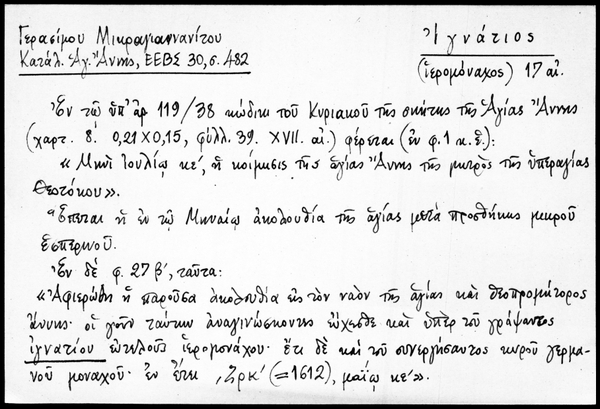 Γερασίμου Μικραγιαννανίτου
Κατάλ. Ἁγ. Ἄννης, ΕΕΒΣ 30, σ. 482
Ἰγνάτιος
(ἱερομόναχος) 17 αἰ.
Ἐν τῷ ὑπ' ἀρ 119/38 κώδικι τοῦ Κυριακοῦ τῆς σκήτης τῆς Ἁγίας Ἄννης
(χαρτ. 8. 0,21 Χ 0,15, φύλλ. 39. XVII. αἰ.) φέρεται (ἐν φ. 1 κ. ἑ.):
« Μηνὶ Ἰουλίῳ κε', ἡ κοίμησις τῆς ἁγίας Ἄννης τῆς μητρὸς τῆς ὑπεραγίας
Θεοτόκου».
Ἕπεται ἡ ἐν τῷ Μηναίῳ ἀκολουθία τῆς ἁγίας μετὰ προσθήκης μικροῦ
ἑσπερινοῦ.
Ἐν δὲ φ. 27 β', ταῦτα:
«Ἀφιερώθη ἡ παροῦσα ἀκολουθία εἰς τὸν ναὸν τῆς ἁγίας καὶ θεοπρομήτορος
ἄννης· οἱ γοῦν ταύτην ἀναγινώσκοντες εὔχεσθε καὶ ὑπὲρ τοῦ γράψαντος
ἰγνατίου εὐτελοῦς ἱερομονάχου· ἔτι δὲ καὶ τοῦ συνεργήσαντος κυροῦ γερμα-
νοῦ μοναχοῦ· ἐν ἔτει ,ζρκ' (=1612), μαΐῳ κε'».